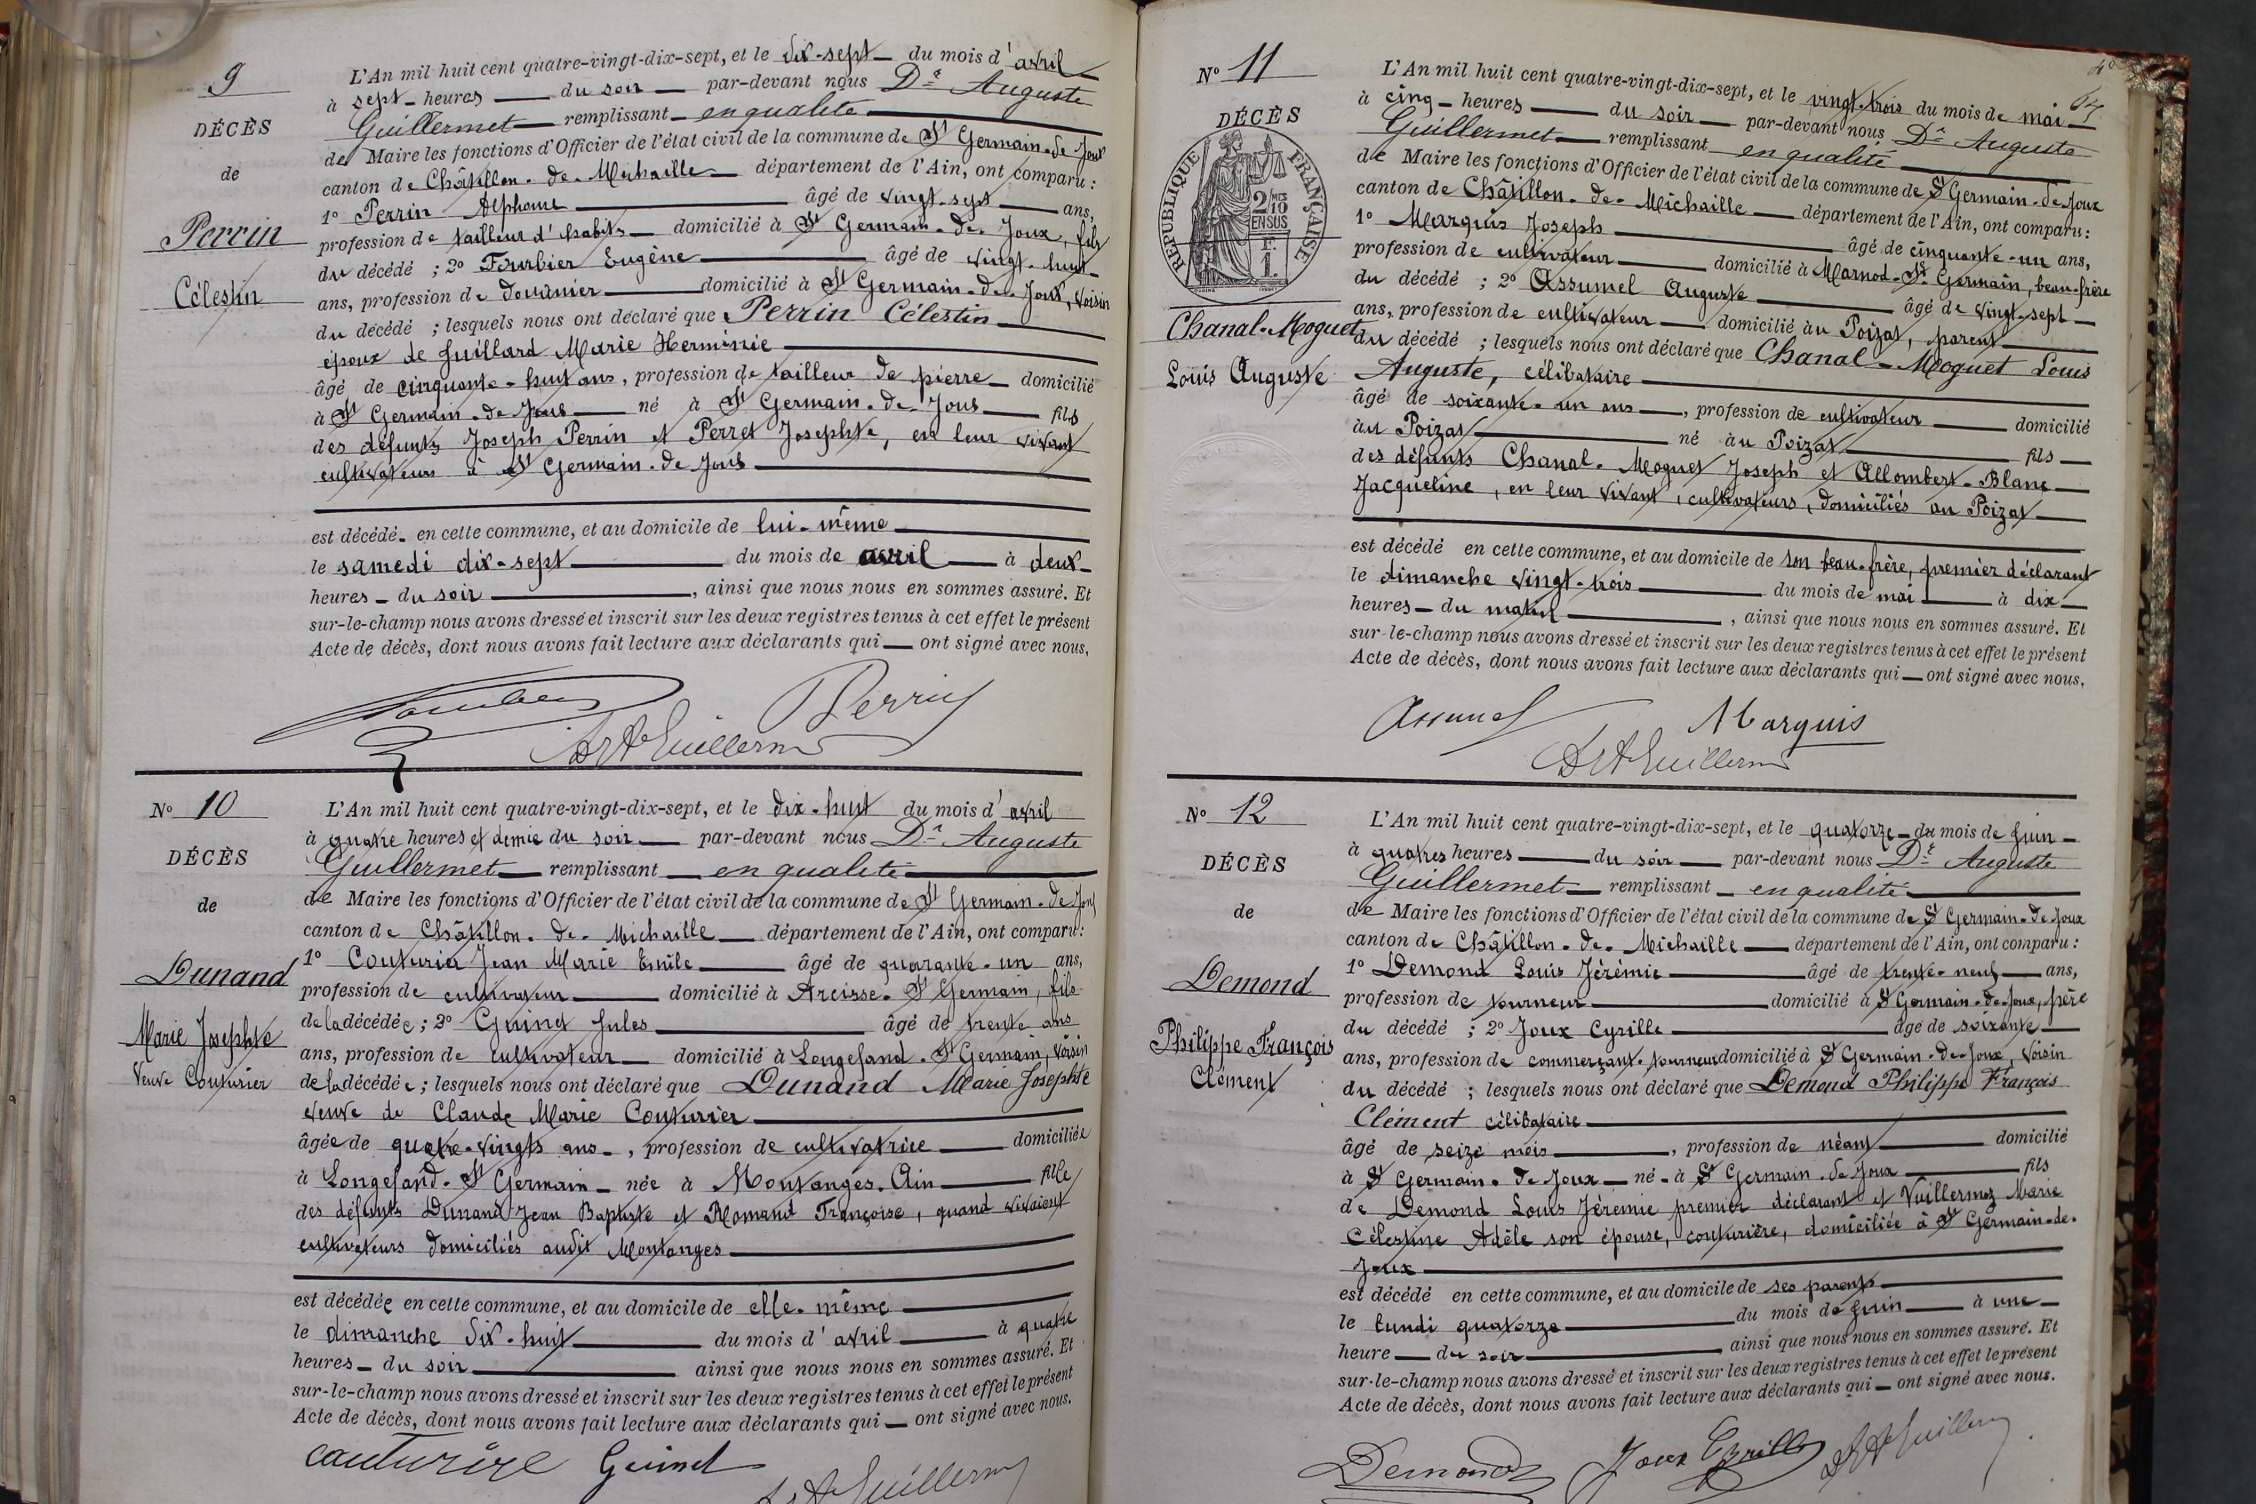 9
DÉCÈS
de
Perrin
Célestin
L'An mil huit cent quatre-vingt-dix-sept, et le dix-sept du mois d'avril
à sept heures du soir par-devant nous Dr Auguste
Guillermet remplissant en qualité
de Maire les fonctions d'Officier de l'état civil de la commune de St Germain-de-Joux
canton de Châtillon-de-Michaille département de l'Ain, ont comparu :
1o Perrin Alphonse âgé de vingt-sept ans,
profession de tailleur d'habits domicilié à St Germain-de-Joux, fils
du décédé ; 2o Fourbier Eugène âgé de vingt-huit
ans, profession de douanier domicilié à St Germain-de-Joux, voisin
du décédé ; lesquels nous ont déclaré que Perrin Célestin
époux de Guillard Marie Herminie
âgé de cinquante-huit ans, profession de tailleur de pierre domicilié
à St Germain-de-Joux né à St Germain-de-Joux fils
des défunts Joseph Perrin et Perret Josephte, en leur vivant
cultivateurs à St Germain-de-Joux
est décédé en cette commune, et au domicile de lui-même
le samedi dix-sept du mois de avril à deux
heures du soir, ainsi que nous nous en sommes assuré. Et
sur-le-champ nous avons dressé et inscrit sur les deux registres tenus à cet effet le présent
Acte de décès, dont nous avons fait lecture aux déclarants qui ont signé avec nous.
Perrin
Dr A Guillermet
No 10
DÉCÈS
de
Dunand
Marie Josephte
Veuve Couturier
L'An mil huit cent quatre-vingt-dix-sept, et le dix-huit du mois d'avril
à quatre heures et demie du soir par-devant nous Dr Auguste
Guillermet remplissant en qualité
de Maire les fonctions d'Officier de l'état civil de la commune de St Germain-de-Joux
canton de Châtillon-de-Michaille département de l'Ain, ont comparu :
1o Couturier Jean Marie Emile âgé de quarante-un ans,
profession de cultivateur domicilié à Arcisse-St Germain, fils
de la décédée ; 2o Guinet Jules âgé de trente ans
ans, profession de cultivateur domicilié à Longefand-St Germain, voisin
de la décédée ; lesquels nous ont déclaré que Dunand Marie Josephte
veuve de Claude Marie Couturier
âgée de quatre-vingts ans, profession de cultivatrice domiciliée
à Longefand-St Germain née à Montanges-Ain fille
des défunts Dunand Jean Baptiste et Romand Françoise, quand vivaient
cultivateurs domiciliés audit Montanges
est décédée en cette commune, et au domicile de elle-même
le dimanche dix-huit du mois d'avril à quatre
heures du soir ainsi que nous nous en sommes assuré. Et
sur-le-champ nous avons dressé et inscrit sur les deux registres tenus à cet effet le présent
Acte de décès, dont nous avons fait lecture aux déclarants qui ont signé avec nous.
Guinet
Dr A Guillermet
No 11
DÉCÈS
RÉPUBLIQUE FRANÇAISE
2/10 MES
EN SUS
F.
1.
Chanal-Moguet
Louis Auguste
L'An mil huit cent quatre-vingt-dix-sept, et le vingt-trois du mois de mai
à cinq heures du soir par-devant nous Dr Auguste
Guillermet remplissant en qualité
de Maire les fonctions d'Officier de l'état civil de la commune de St Germain-de-Joux
canton de Châtillon-de-Michaille département de l'Ain, ont comparu :
1o Marquis Joseph âgé de cinquante-un ans,
profession de cultivateur domicilié à Marnod-St Germain, beau-frère
du décédé ; 2o Assumel Auguste âgé de vingt-sept
ans, profession de cultivateur domicilié au Poizat, parent
du décédé ; lesquels nous ont déclaré que Chanal-Moguet Louis
Auguste, célibataire
âgé de soixante-un ans, profession de cultivateur domicilié
au Poizat né au Poizat fils
des défunts Chanal-Moguet Joseph et Allombert-Blanc
Jacqueline, en leur vivant, cultivateurs, domiciliés au Poizat
est décédé en cette commune, et au domicile de son beau-frère, premier déclarant
le dimanche vingt-trois du mois de mai à dix
heures du matin, ainsi que nous nous en sommes assuré. Et
sur-le-champ nous avons dressé et inscrit sur les deux registres tenus à cet effet le présent
Acte de décès, dont nous avons fait lecture aux déclarants qui ont signé avec nous.
Assumel Marquis
Dr A Guillermet
No 12
DÉCÈS
de
Demond
Philippe François
Clément
L'An mil huit cent quatre-vingt-dix-sept, et le quatorze du mois de juin
à quatres heures du soir par-devant nous Dr Auguste
Guillermet remplissant en qualité
de Maire les fonctions d'Officier de l'état civil de la commune de St Germain-de-Joux
canton de Châtillon-de-Michaille département de l'Ain, ont comparu :
1o Demond Louis Jérémie âgé de trente-neuf ans,
profession de tourneur domicilié à St Germain-de-Joux, père
du décédé ; 2o Joux Cyrille âgé de soixante
ans, profession de commerçant-tourneur domicilié à St Germain-de-Joux, voisin
du décédé ; lesquels nous ont déclaré que Demond Philippe François
Clément célibataire
âgé de seize mois, profession de néant domicilié
à St Germain-de-Joux né à St Germain-de-Joux fils
de Demond Louis Jérémie premier déclarant et Vuillermoz Marie
Célestine Adèle son épouse, couturière, domiciliée à St Germain-de-
Joux
est décédé en cette commune, et au domicile de ses parents
le lundi quatorze du mois de juin à une
heure du soir ainsi que nous nous en sommes assuré. Et
sur-le-champ nous avons dressé et inscrit sur les deux registres tenus à cet effet le présent
Acte de décès, dont nous avons fait lecture aux déclarants qui ont signé avec nous.
Demond Joux Cyrille Dr A Guillermet